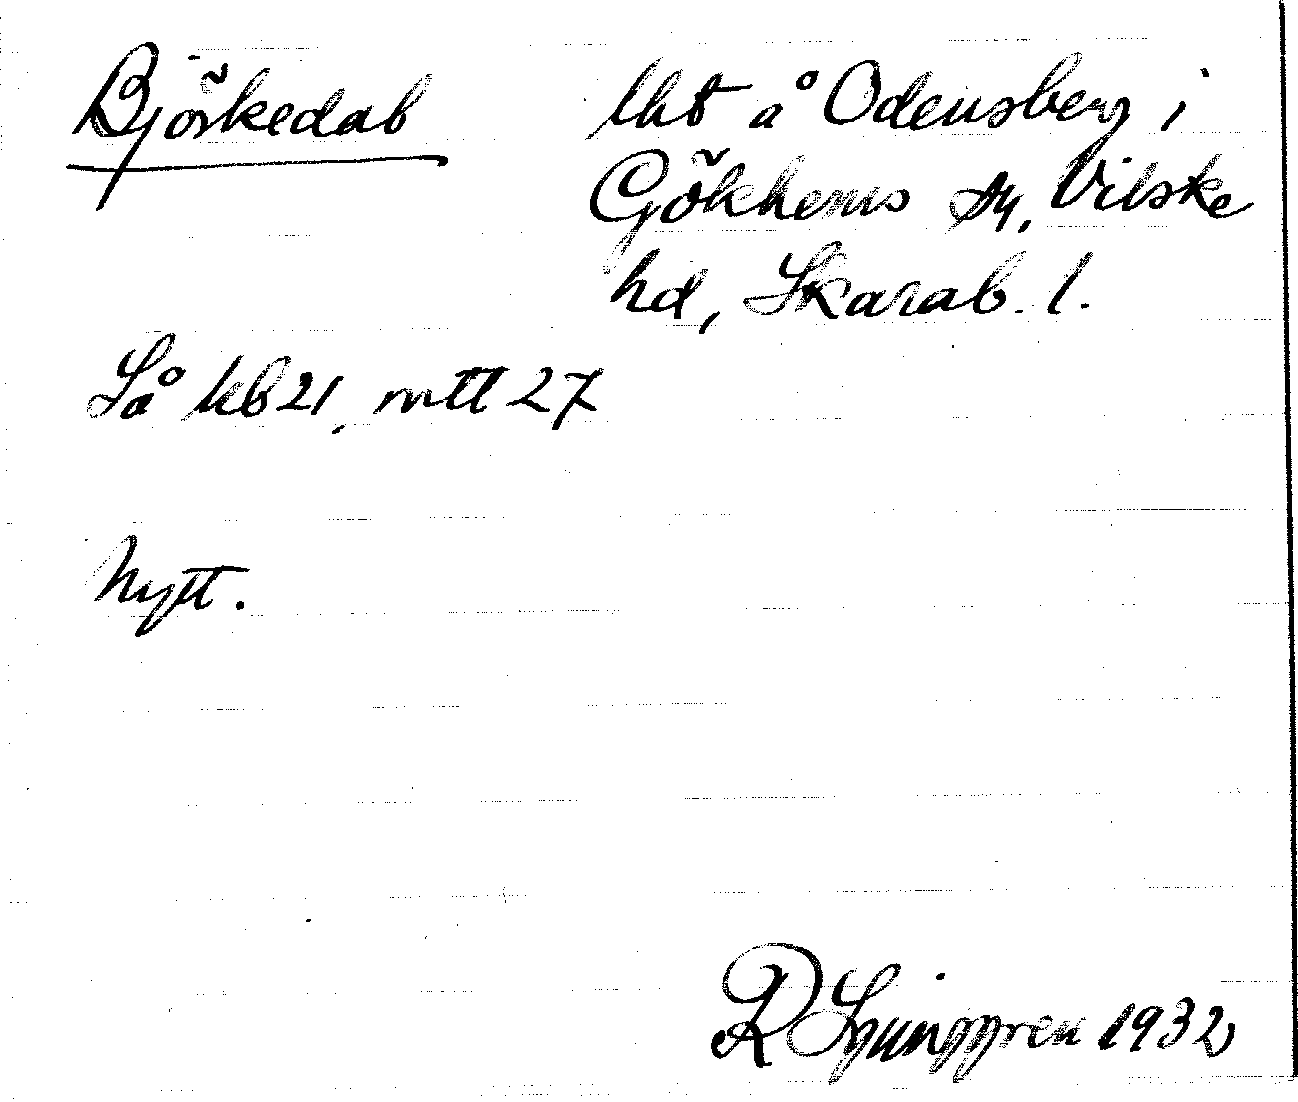 Björkedal
lht å Odensberg i
Gökhems sn, Vilske
hd, Skarab. l.
Så kb 21, mtt 27
Nytt.
R Ljunggren 1932